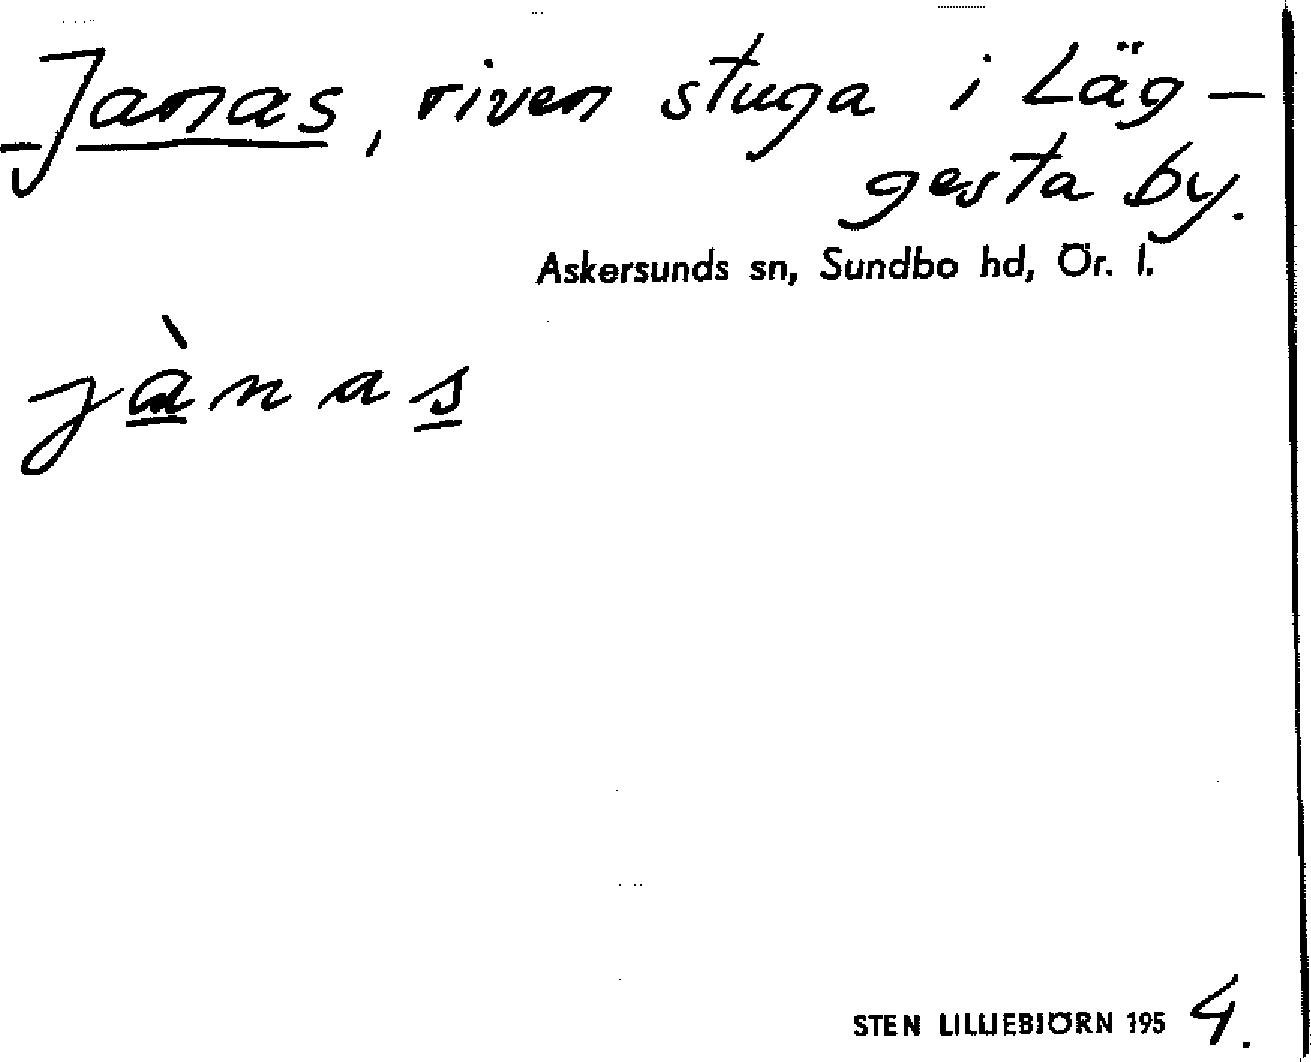 Janas, riven stuga i Läg-
gesta by.
Askersunds sn, Sundbo hd, Ör. l.
jànas
STEN LILLIEBJÖRN 1954.